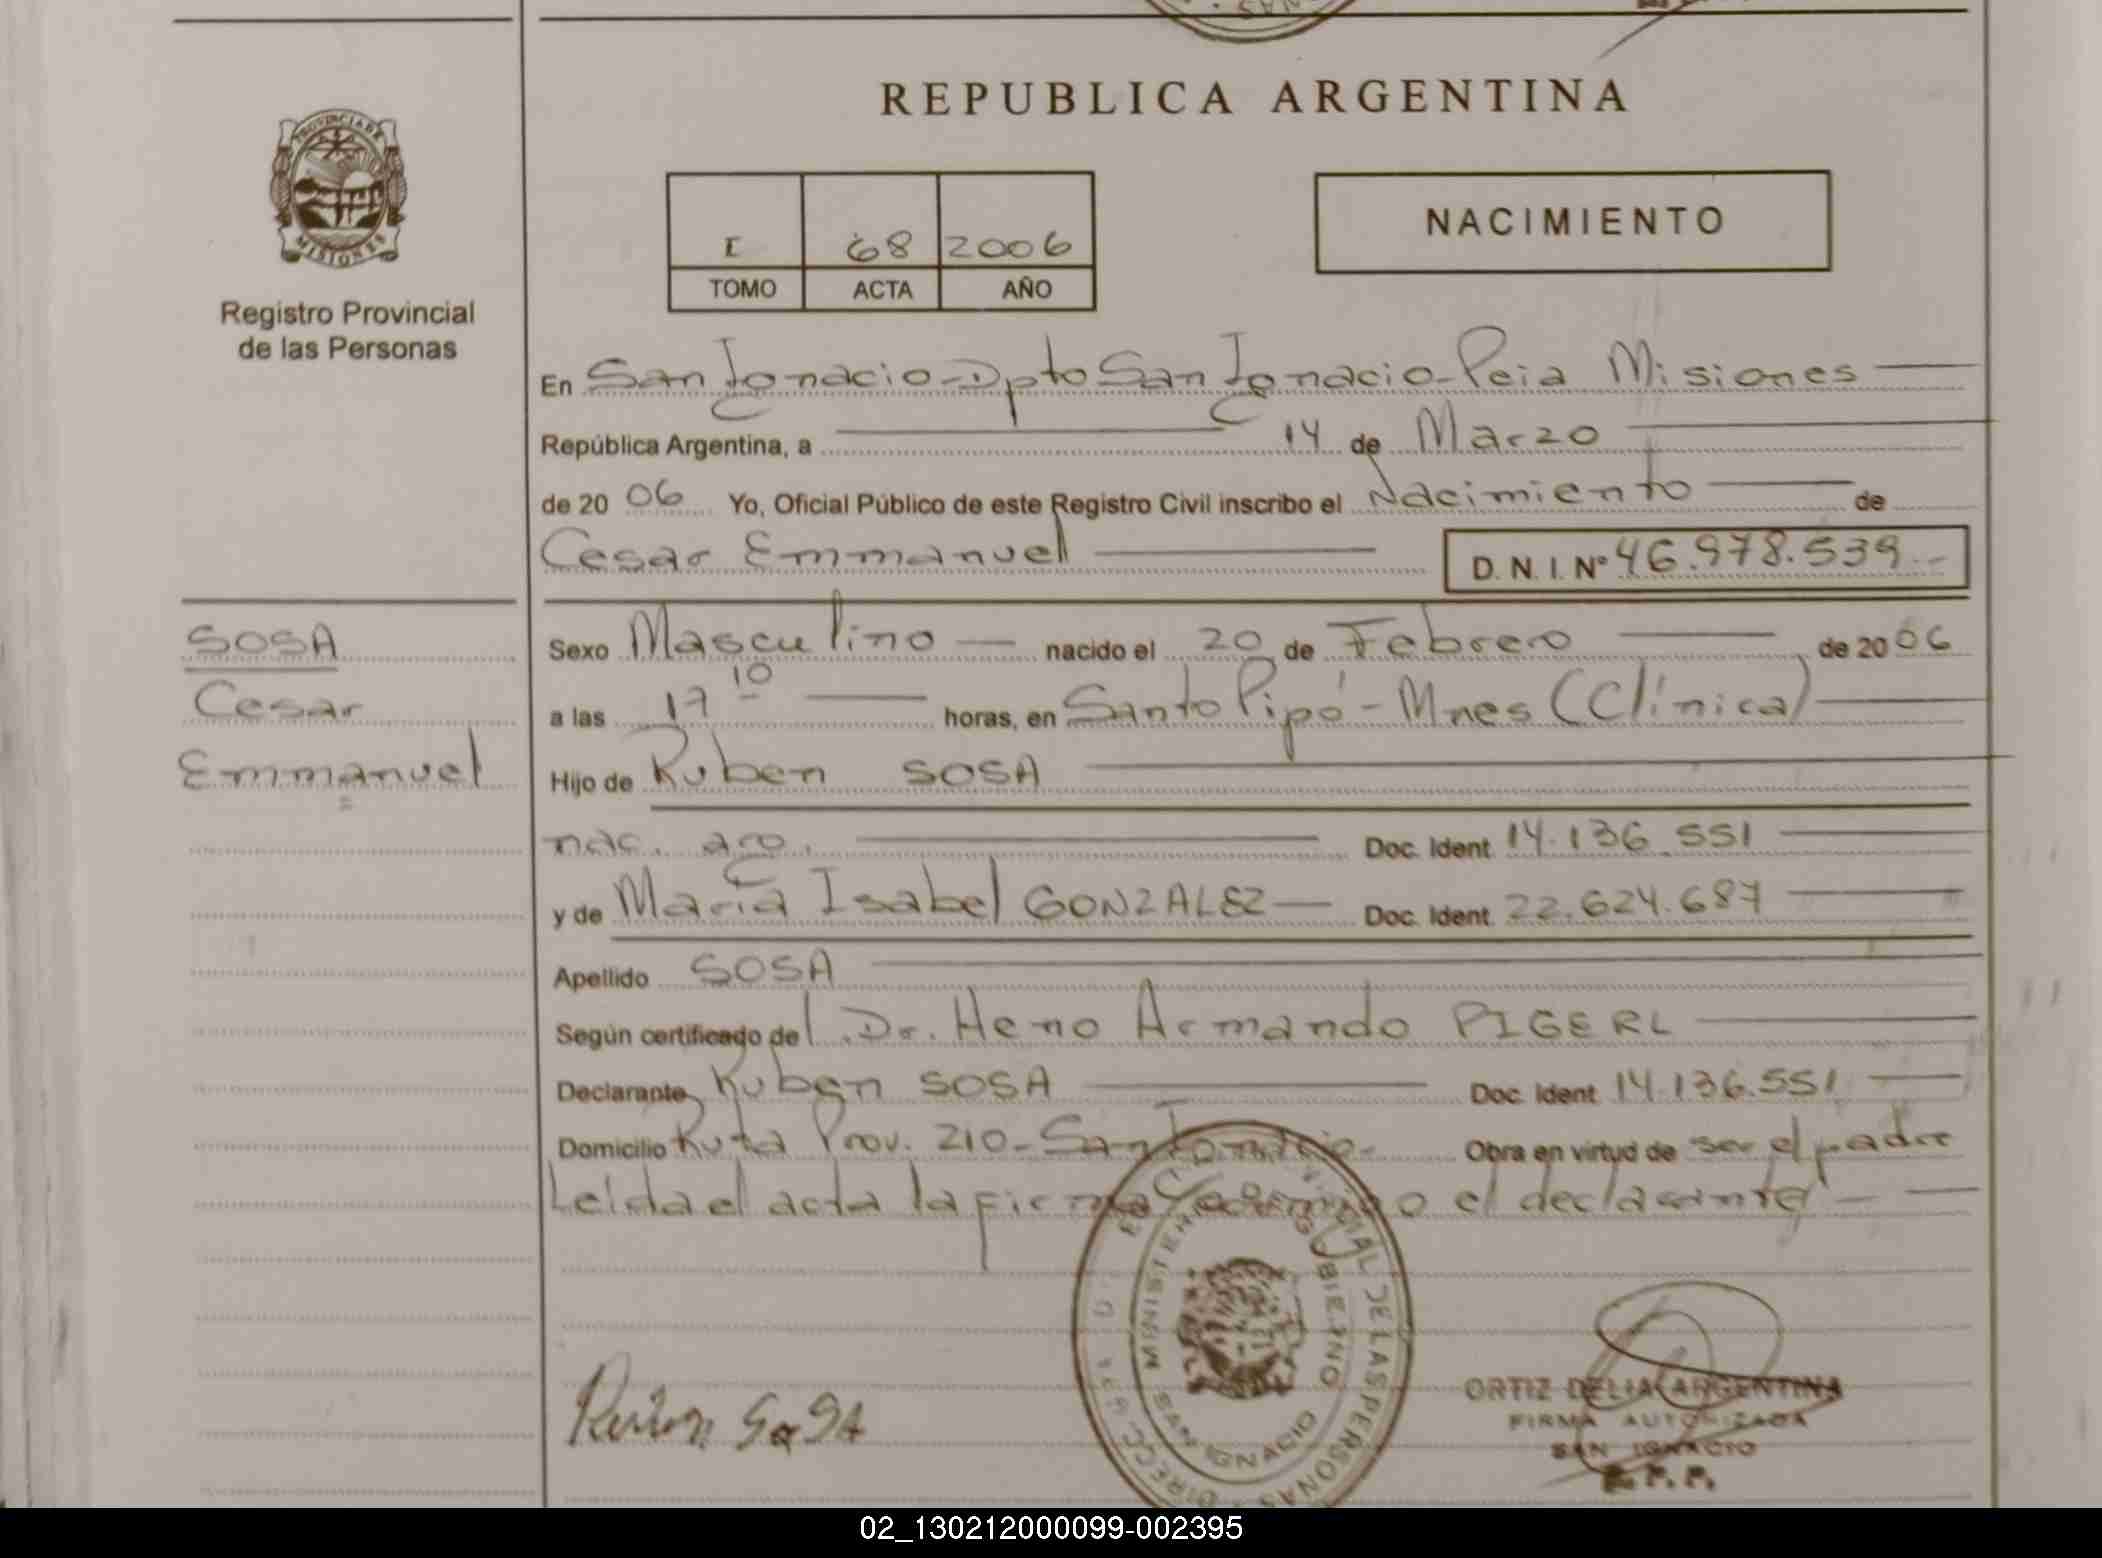 REPUBLICA ARGENTINA
PROVINCIA DE
MISIONES
Registro Provincial
de las Personas
I 68 2006
TOMO ACTA AÑO
NACIMIENTO
En San Ignacio - Dpto San Ignacio - Pcia Misiones
República Argentina, a 14 de Marzo
de 20 06 Yo, Oficial Público de este Registro Civil inscribo el Nacimiento de
Cesar Emmanuel D. N. I. Nº 46.978.539.-
SOSA
Cesar
Emmanuel
Sexo Masculino nacido el 20 de Febrero de 20 06
a las 17 10 horas, en Santo Pipó - Mnes (Clínica)
Hijo de Ruben SOSA
nac. arg. Doc. Ident. 14.136.551
y de María Isabel GONZALEZ Doc. Ident. 22.624.687
Apellido SOSA
Según certificado del Dr. Heno Armando PIGERL
Declarante Ruben SOSA Doc. Ident. 14.136.551
Domicilio Ruta Prov. 210 - San Ignacio - Obra en virtud de ser el padre
Leída el acta la firma conmigo el declarante
Ruben SoSA
MINISTERIO DE GOBIERNO
SAN IGNACIO
ORTIZ DELIA ARGENTINA
FIRMA AUTORIZADA
SAN IGNACIO
R. P. P.
02_130212000099-002395